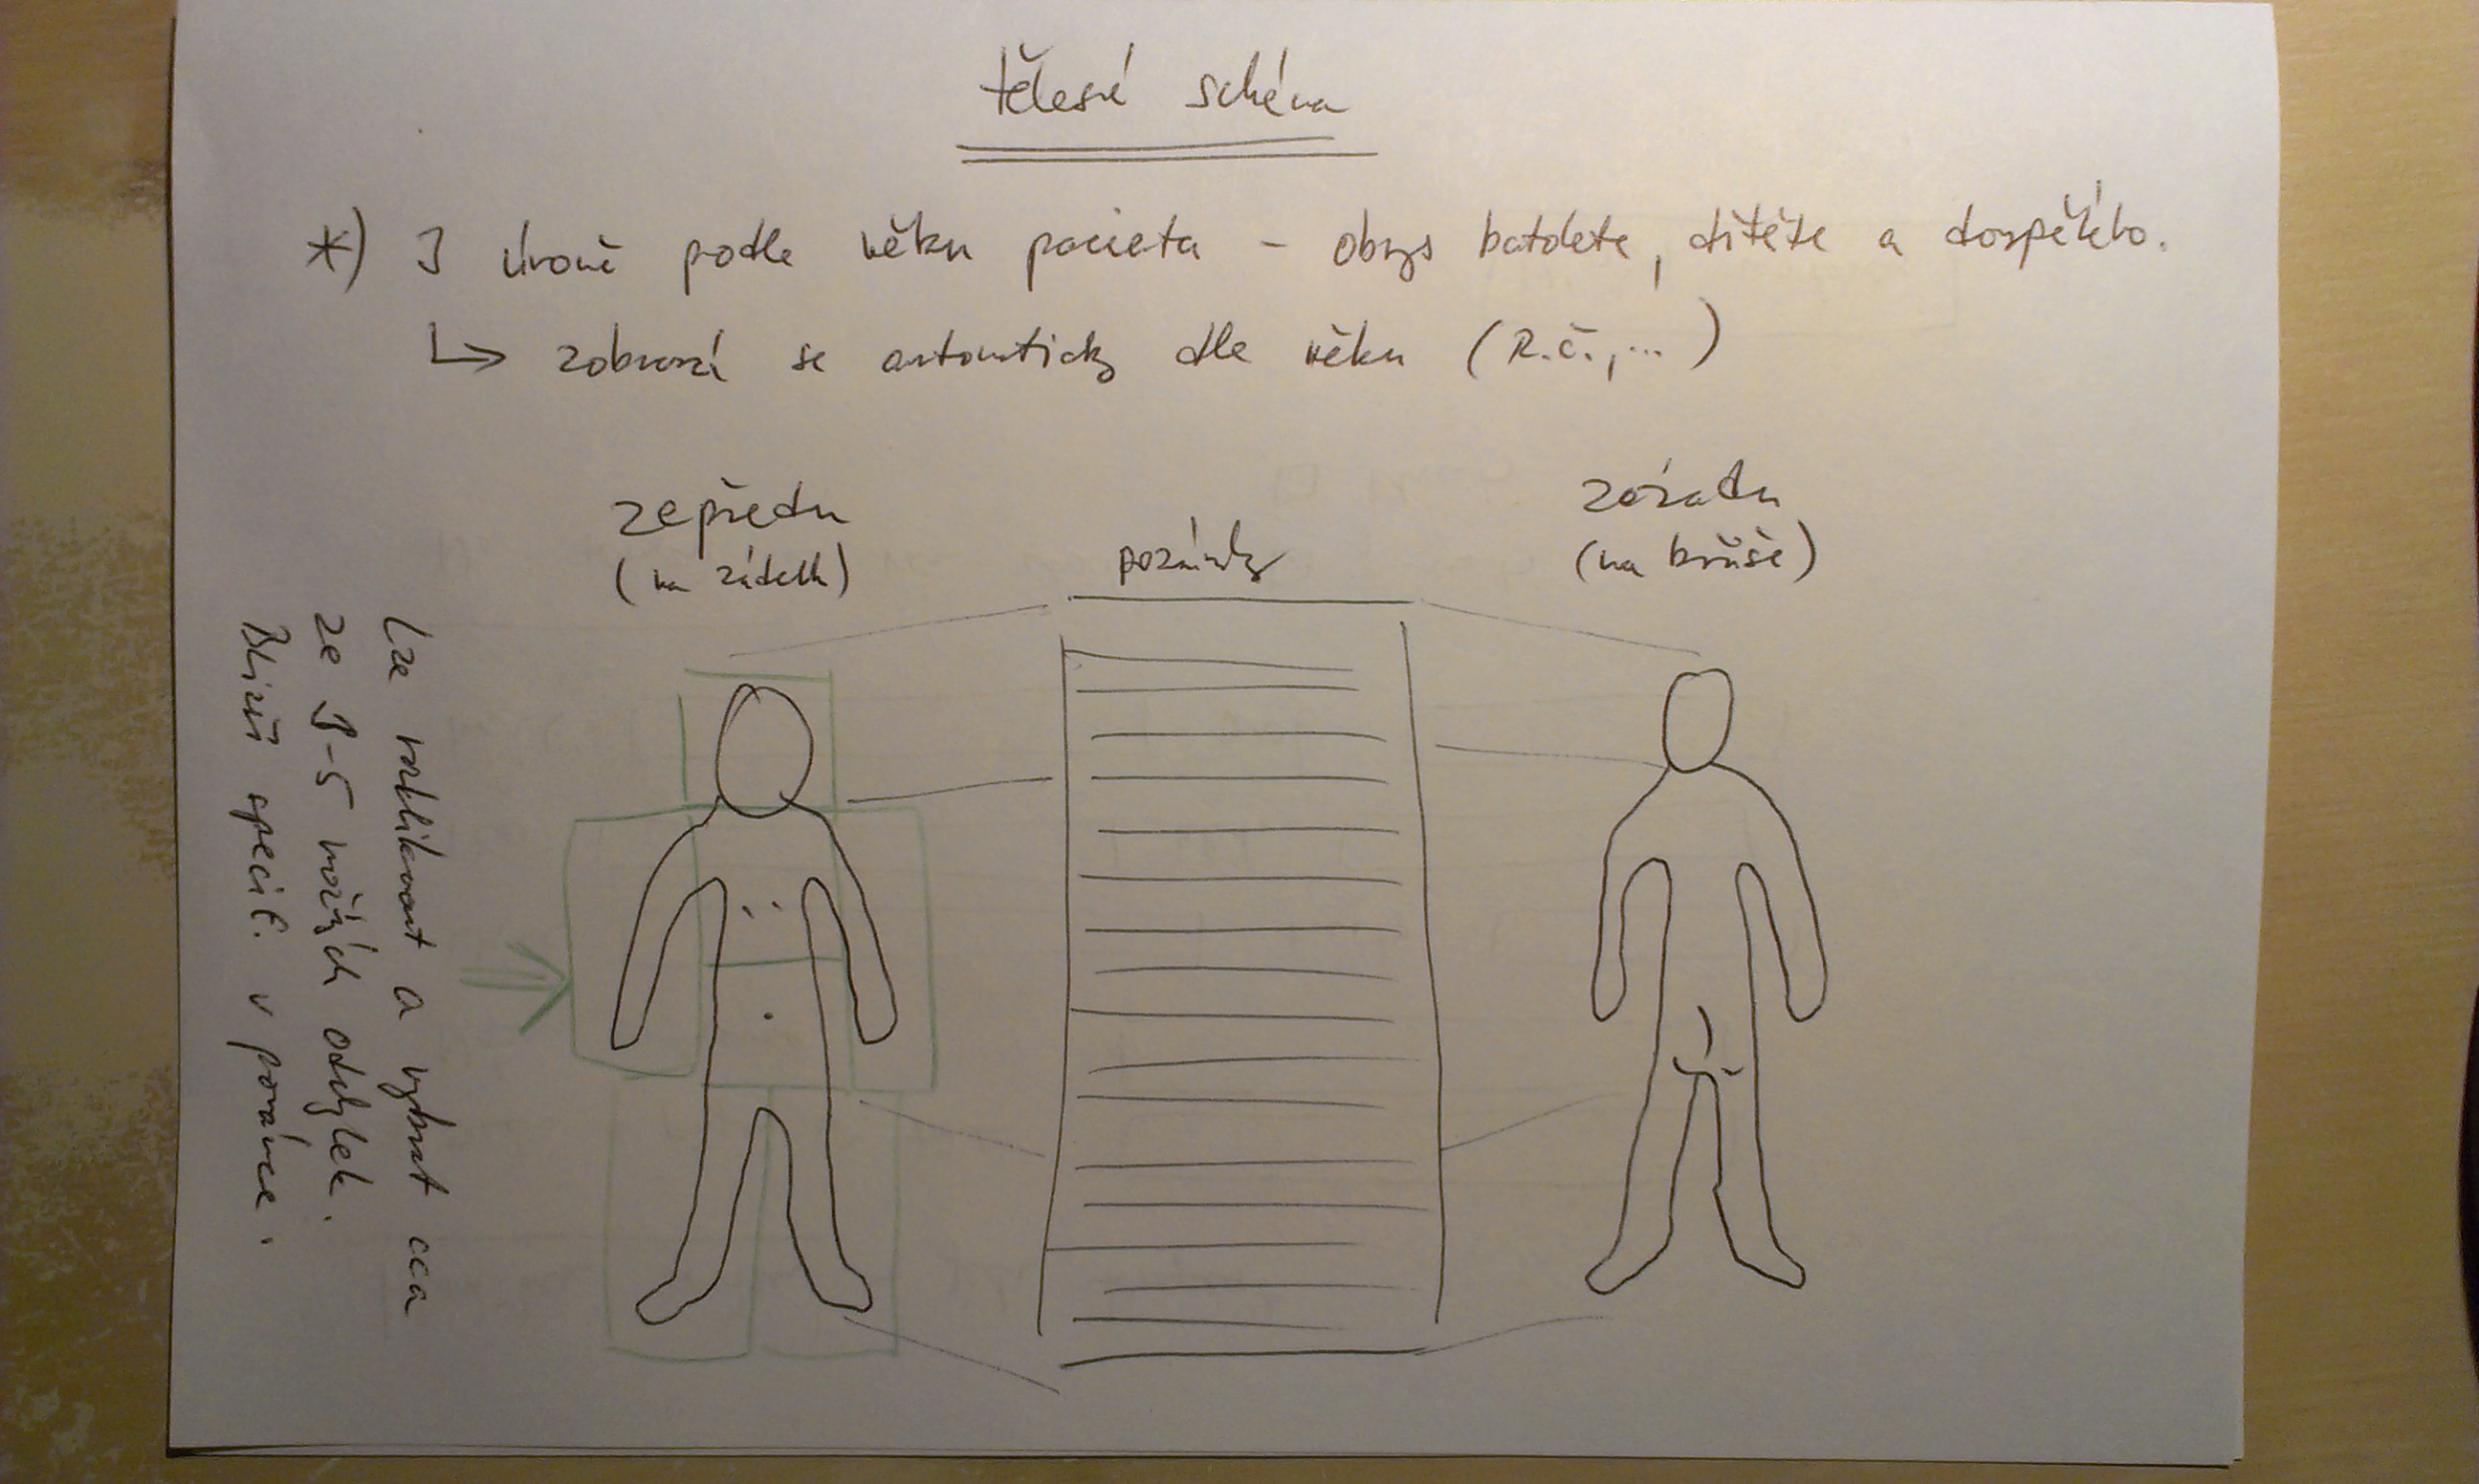 tělesné schéma
*) 3 úrovně podle věku pacienta - obrys batolete, dítěte a dospělého.
zobrazí se automaticky dle věku (R.č., ...)
zepředu
(na zádech)
poznámky
zezadu
(na břiše)
Lze rozkliknout a vybrat cca
ze 3-5 možných odchylek.
Bližší specif. v poznámce.